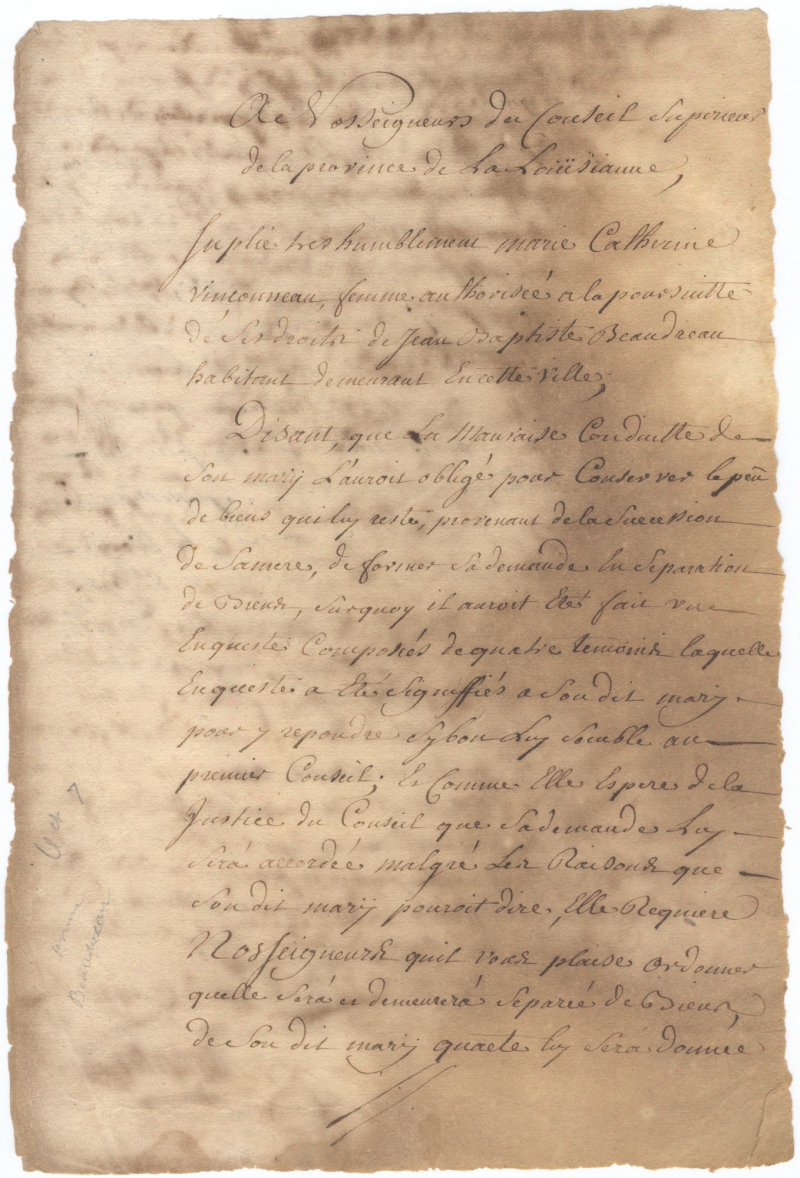 A Nosseigneurs du Conseil Superieur
de la province de La Loüisianne,
Suplie tres humblement marie Catherine
vinconneau, femme authorisée a la poursuitte
de ses droits de Jean Baptiste Beaudreau
habitant demeurant En cette ville,
Disant, que La Mauvaise Conduitte de
Son mary L'auroit obligé pour Conserver le peu
de biens qui luy reste, provenant de la Succession
de Sa mere, de former Sa demande En Separation
de Biens, Surquoy il auroit Eté fait une
Enqueste Composés de quatre temoins laquelle
Enqueste a Eté Signiffiés a Son dit mary
pour y repondre Sy bon Luy Semble au
premier Conseil; Et Comme Elle Espere de la
Justice du Conseil que Sa demande Luy
Sera accordée malgré Les Raisons que
Son dit mary pouroit dire, Elle Requiere
Nosseigneurs quil vous plaise ordonner
quelle Sera et demeurera Separée de Biens,
de Son dit mary quacte luy Sera donnée
Oct 7
Beaudreau